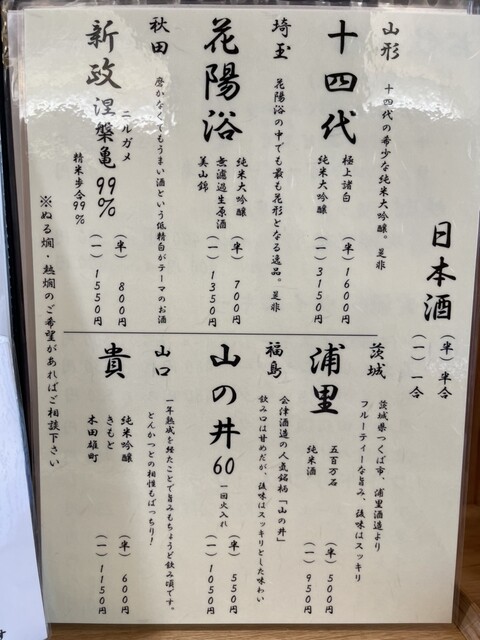 日本酒
(半) 半合
(一) 一合
山形
十四代の希少な純米大吟醸。是非
十四代
極上諸白
純米大吟醸
(半) 1600円
(一) 3150円
埼玉
花陽浴の中でも最も花形となる逸品。是非
花陽浴
純米大吟醸
無濾過生原酒
美山錦
(半) 700円
(一) 1350円
秋田
磨かなくてもうまい酒という低精白がテーマのお酒
新政 涅槃亀99%
ニルガメ
精米歩合99%
(半) 800円
(一) 1550円
茨城
茨城県つくば市、浦里酒造より
フルーティーな旨み、後味はスッキリ
浦里
五百万石
純米酒
(半) 500円
(一) 950円
福島
会津酒造の人気銘柄「山の井」
飲み口は甘めだが、後味はスッキリとした味わい
山の井60
一回火入れ
(半) 550円
(一) 1050円
山口
一年熟成を経たことで旨みもちょうど飲み頃です。
とんかつとの相性もばっちり!
貴
純米吟醸
きもと
木田雄町
(半) 600円
(一) 1150円
※ぬる燗・熱燗のご希望があればご相談下さい
す